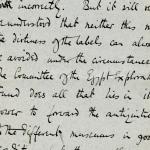 incorrectly. But it will
understood that neither this n
the dirtiness of the labels can alwa
avoided under the circumstance
Committee of the Egypt Explorat
Fund does all that lies in it
power to forward the antiquitie
the different museums in goo